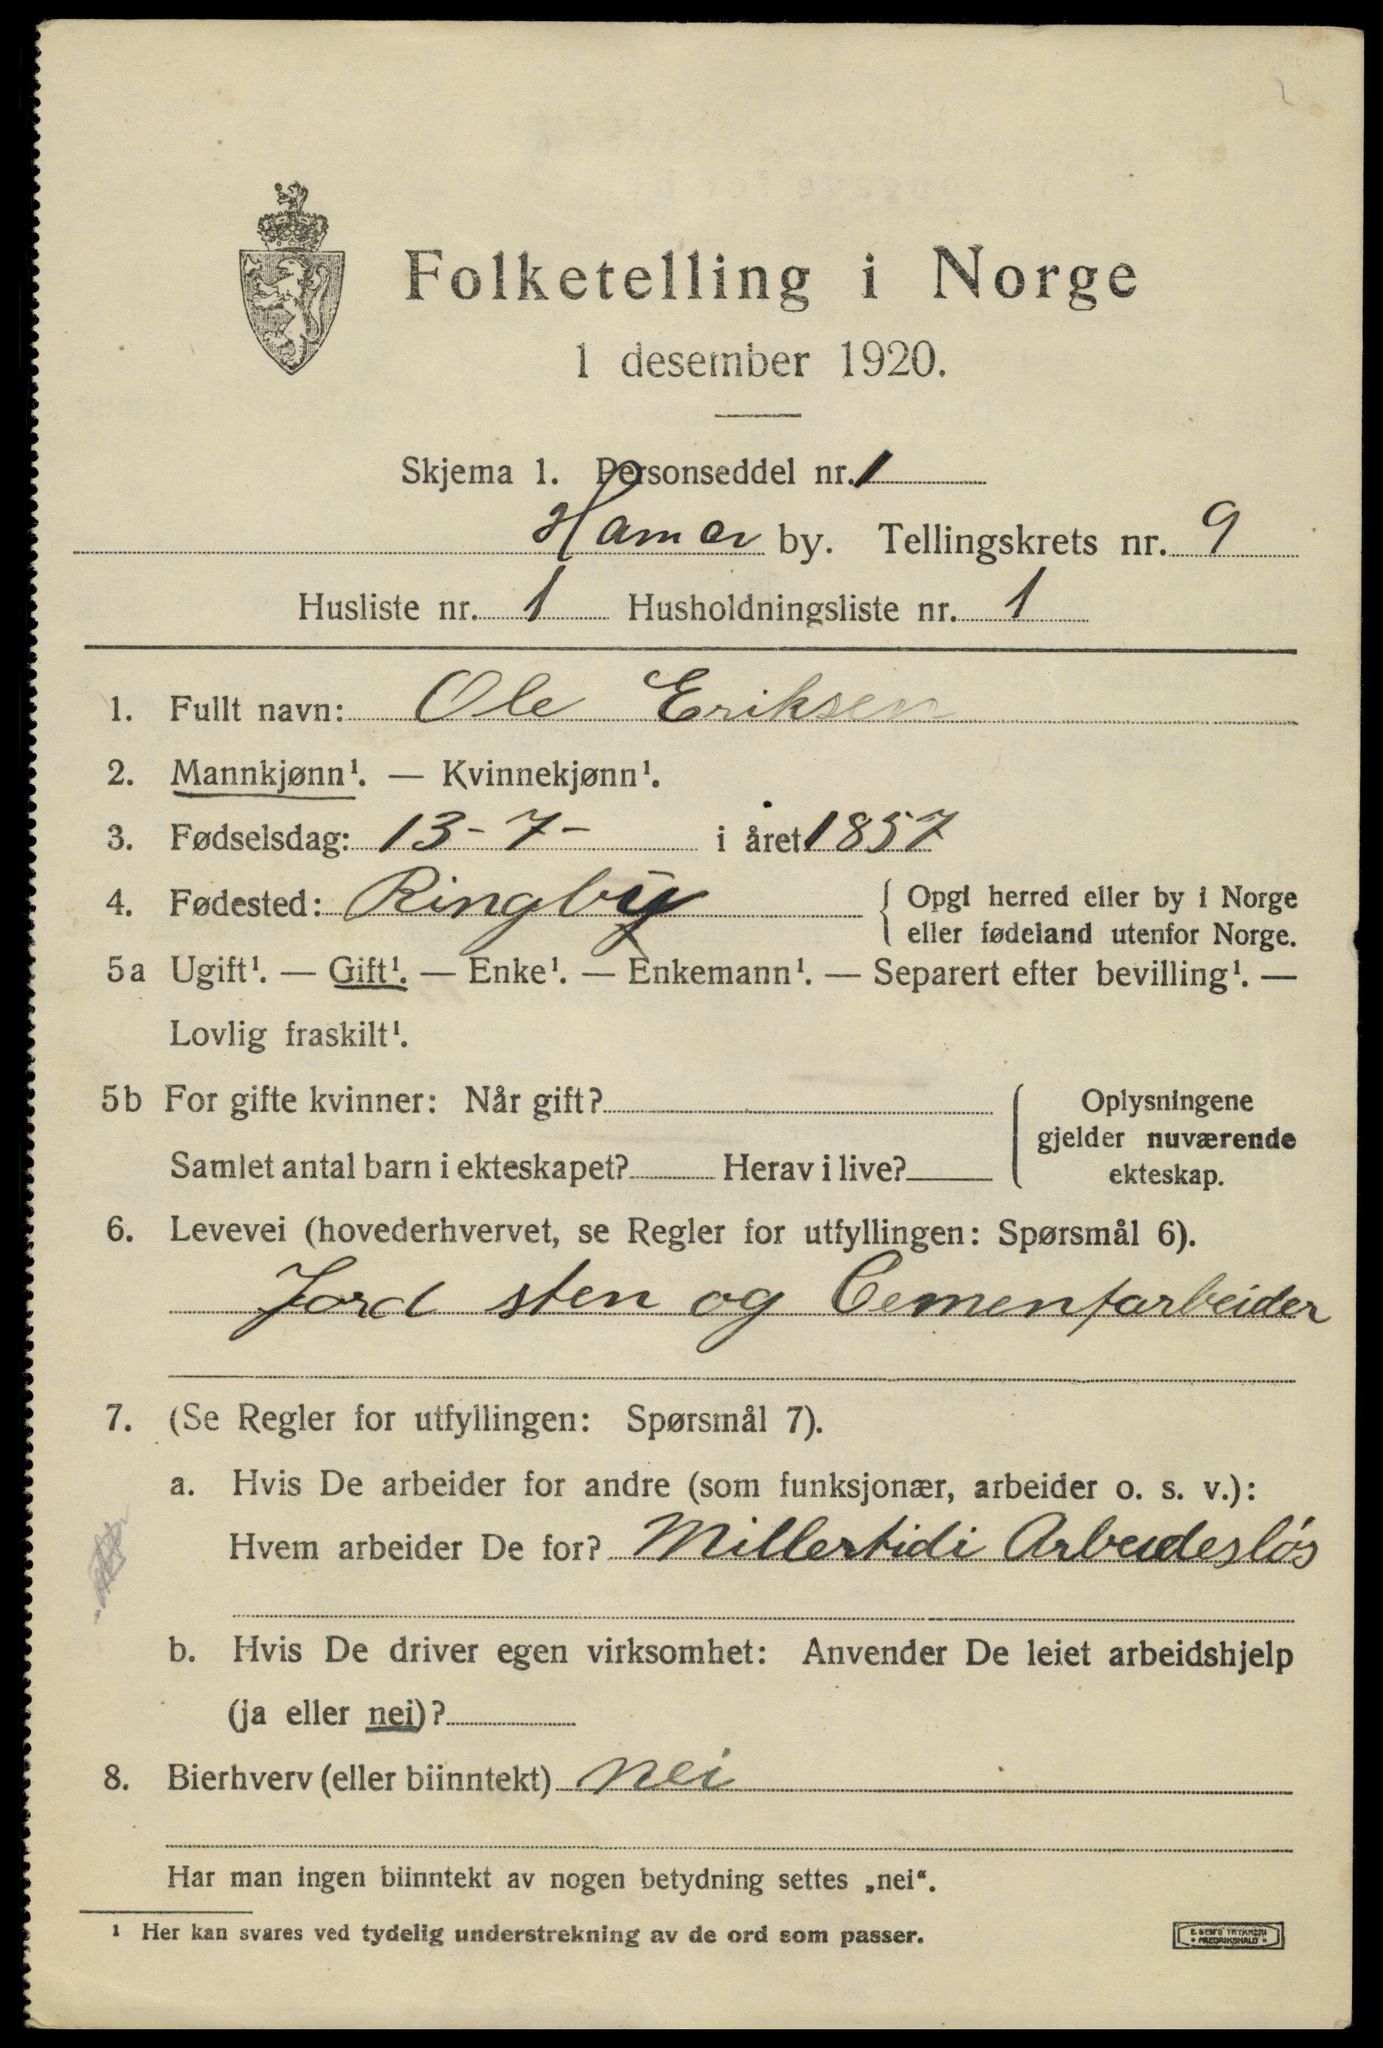 Folketelling i Norge
1 desember 1920.
Skjema 1. Personseddel nr. 1
Hamar by. Tellingskrets nr. 9
Husliste nr. 1 Husholdningsliste nr. 1
1. Fullt navn: Ole Eriksen
2. Mannkjønn¹. — Kvinnekjønn¹.
3. Fødselsdag: 13-7- i året 1857
4. Fødested: Ringby { Opgi herred eller by i Norge
eller fødeland utenfor Norge.
5a Ugift¹. — Gift¹. — Enke¹. — Enkemann¹. — Separert efter bevilling¹. —
Lovlig fraskilt¹.
5b For gifte kvinner: Når gift? Oplysningene
gjelder nuværende
Samlet antal barn i ekteskapet? Herav i live? ekteskap.
6. Levevei (hovederhvervet, se Regler for utfyllingen: Spørsmål 6).
Jord sten og Cementarbeider
7. (Se Regler for utfyllingen: Spørsmål 7).
a. Hvis De arbeider for andre (som funksjonær, arbeider o. s. v.):
Hvem arbeider De for? Millertidi Arbeidesløs
b. Hvis De driver egen virksomhet: Anvender De leiet arbeidshjelp
(ja eller nei)?
8. Bierhverv (eller biinntekt) nei
Har man ingen biinntekt av nogen betydning settes „nei“.
¹ Her kan svares ved tydelig understrekning av de ord som passer.
E. SEM'S TRYKKERI
• FREDRIKSHALD •